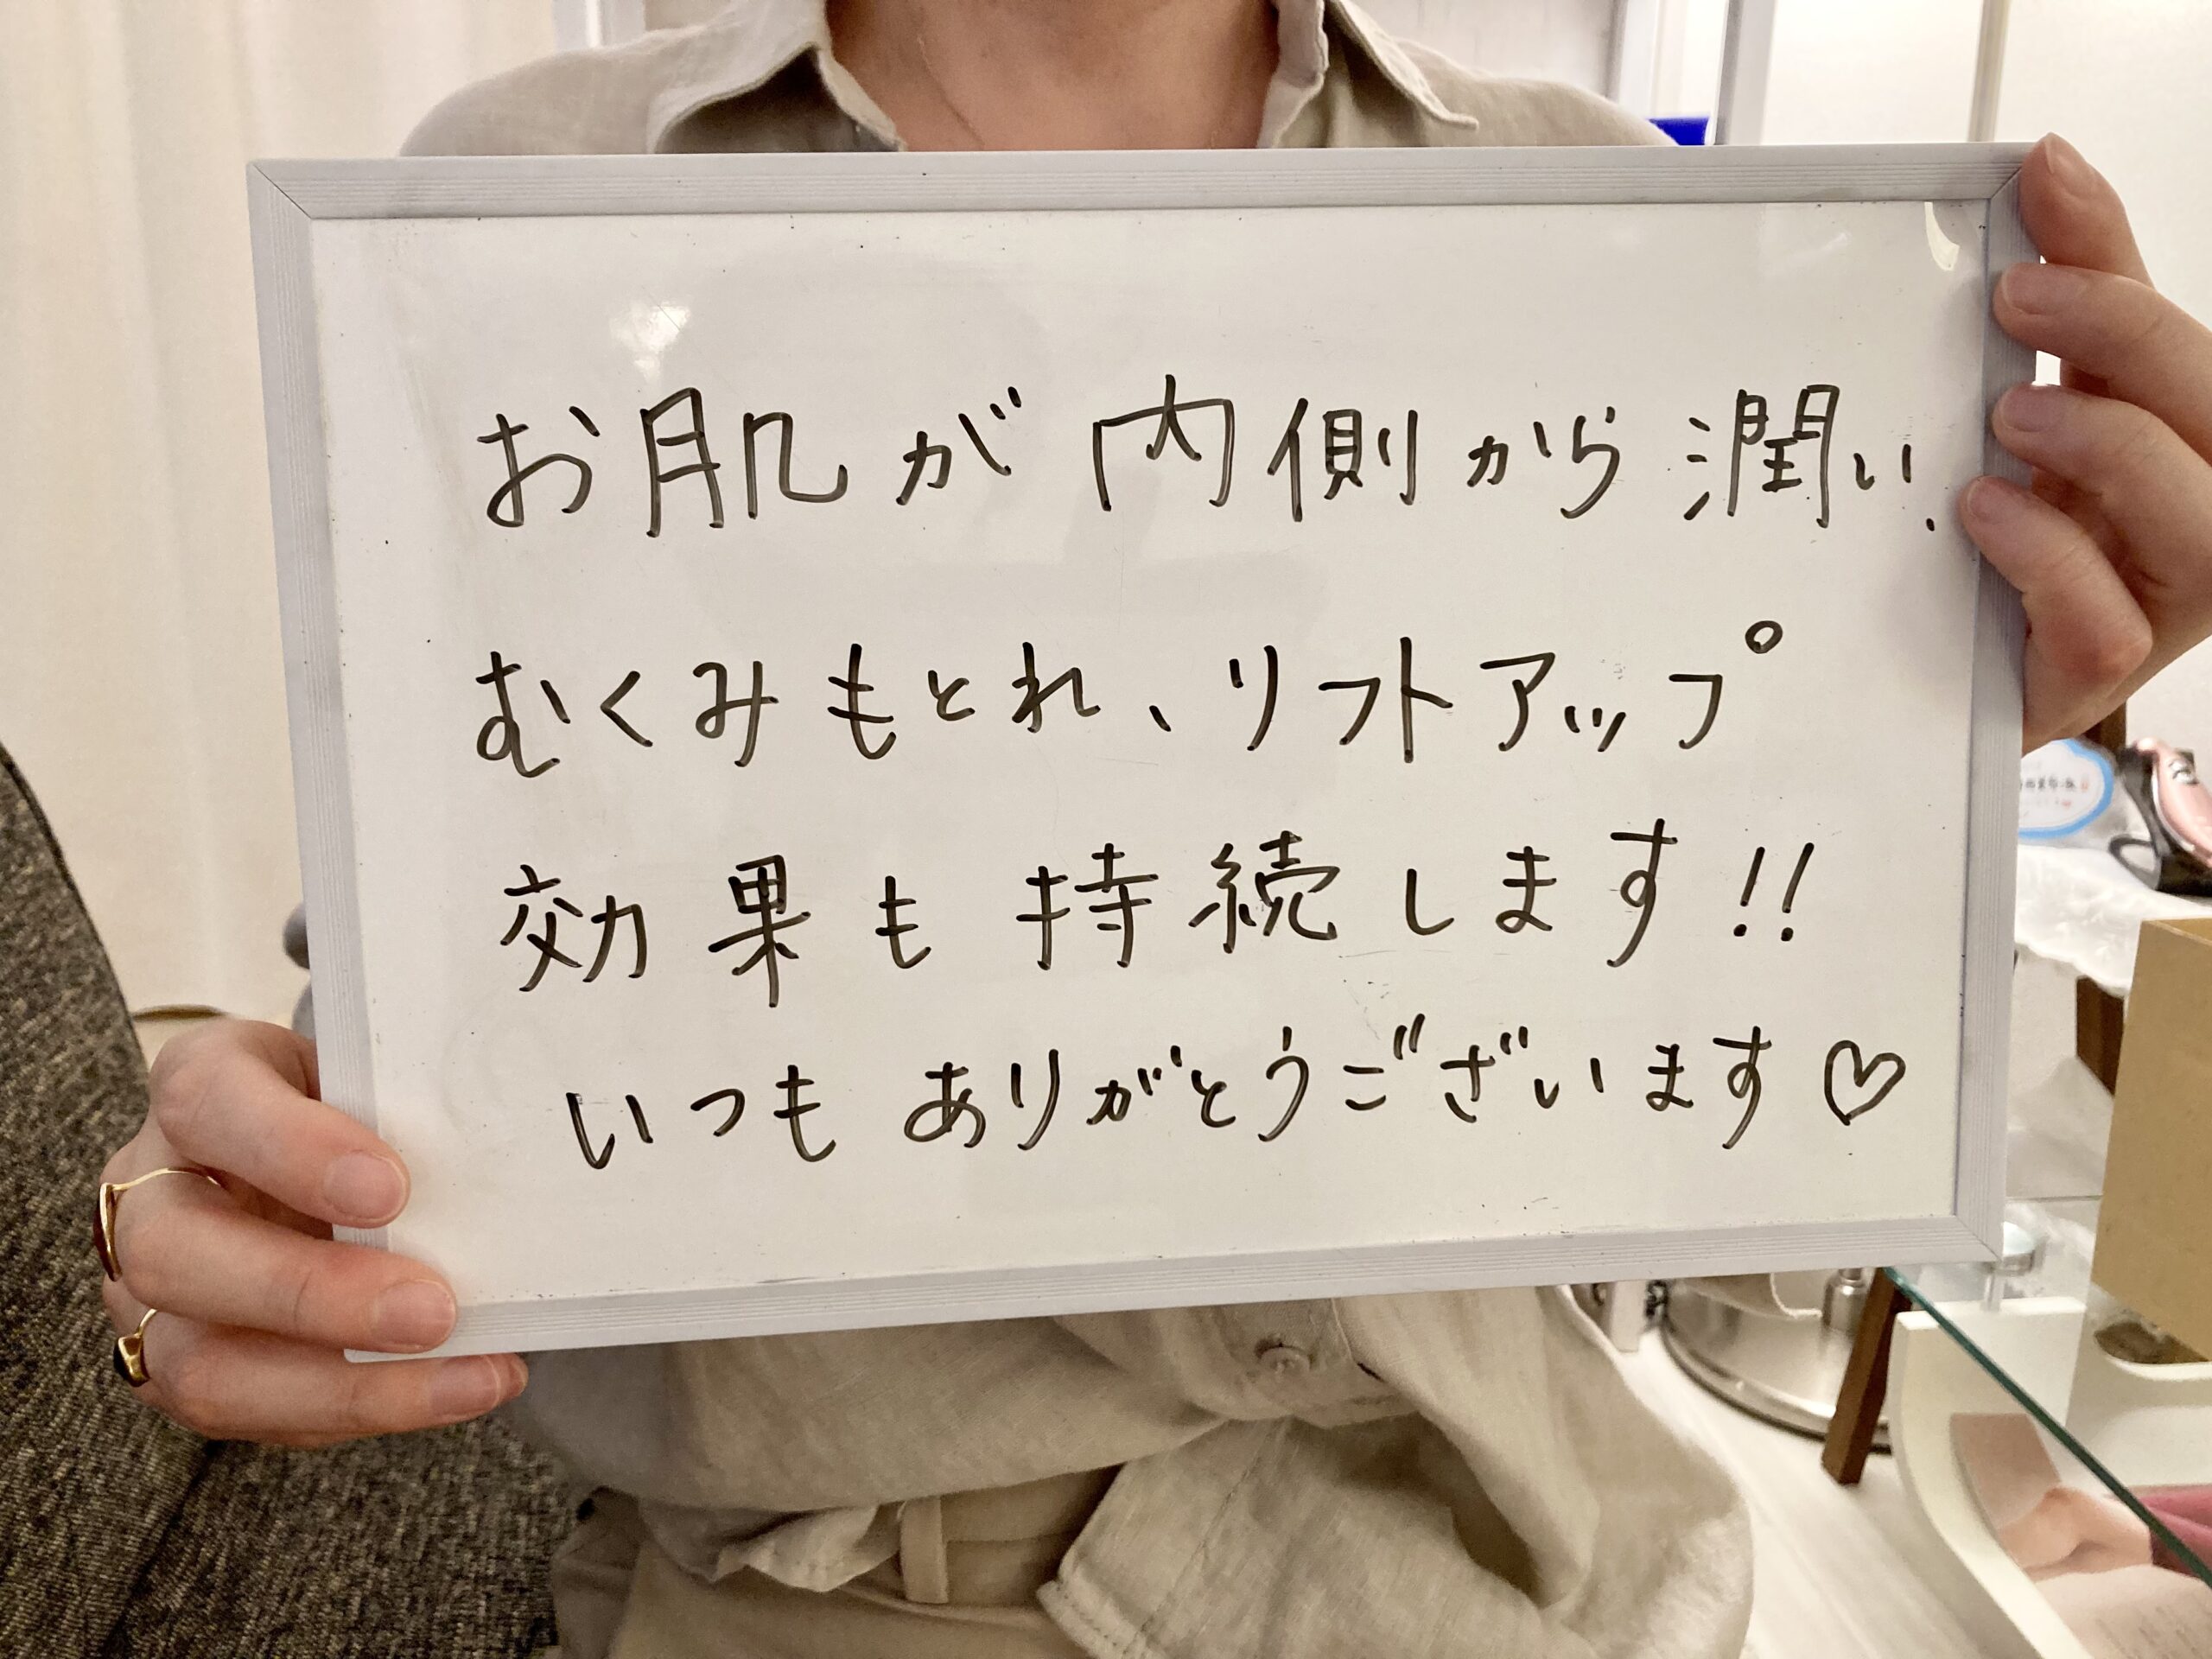 お肌が内側から潤い、
むくみもとれ、リフトアップ
効果も持続します!!
いつもありがとうございます♡